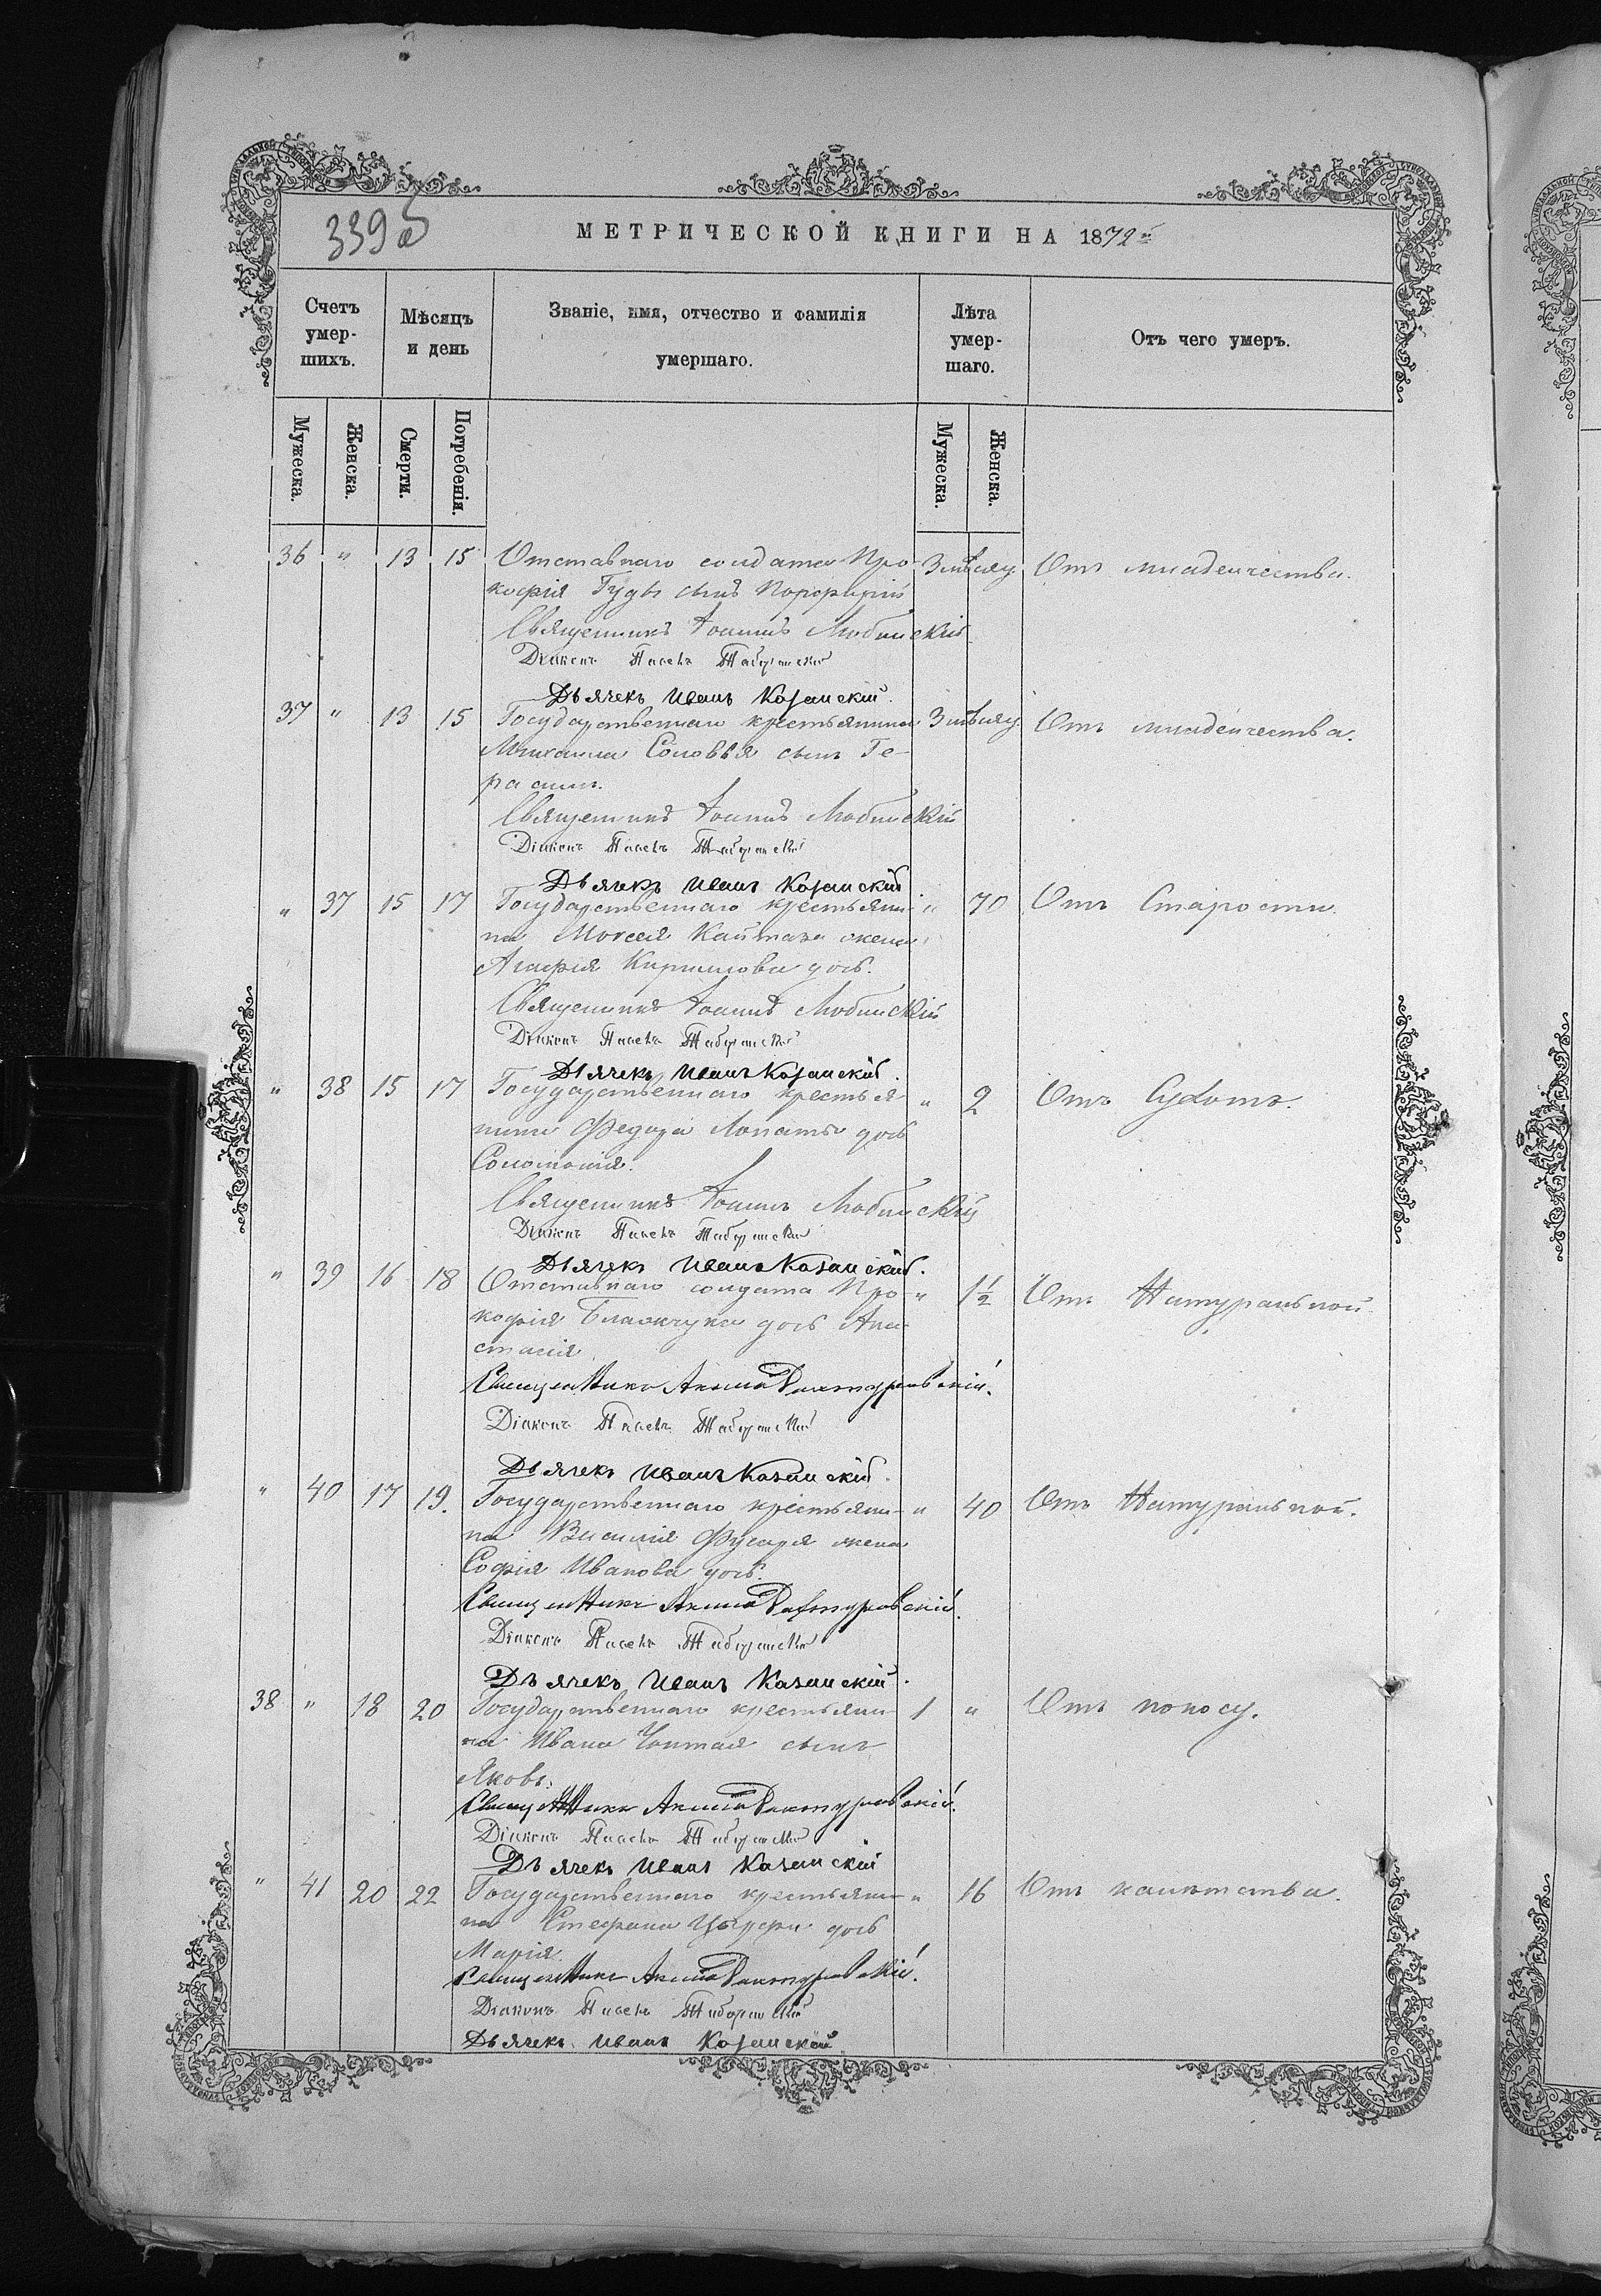 339 об
МЕТРИЧЕСКОЙ КНИГИ НА 1872 й
Счетъ умер-шихъ.
Мѣсяцъ и день
Званіе, имя, отчество и фамилія умершаго.
Лѣта умер-шаго.
Отъ чего умеръ.
Мужеска.
Женска.
Смерти.
Погребенія.
Мужеска.
Женска.
36 " 13 15 Отставнаго солдата Про- 3 мѣсяц. Отъ младенчества.
кофія Гудь сынъ Порфирій
Священникъ Іоаннъ Любинскій
Діаконъ Павелъ
Дьячекъ Иванъ Казанскій.
37 " 13 15 Государственнаго крестьянина 3 мѣсяц. Отъ младенчества.
Михаила Соловья сынъ Ге-
расимъ.
Священникъ Іоаннъ Любинскій
Діаконъ Павелъ
Дьячекъ Иванъ Казанскій
" 37 15 17 Государственнаго крестьяни- " 70 Отъ Старости.
на Моисея Кайтана жена
Агафія Кирилова дочь.
Священникъ Іоаннъ Любинскій
Діаконъ Павелъ
Дьячекъ Иванъ Казанскій.
" 38 15 17 Государственнаго крестья- " 2 Отъ Сухотъ.
нина Федора Лопаты дочь
Соломонія.
Священникъ Іоаннъ Любинскій
Діаконъ Павелъ
Дьячекъ Иванъ Казанскій.
" 39 16 18 Отставнаго солдата Про- " 1½ Отъ Натуральной
кофія дочь Ана-
стасія
Священникъ
Діаконъ Павелъ
Дьячекъ Иванъ Казанскій.
" 40 17 19. Государственнаго крестьяни- " 40 Отъ Натуральной.
на Василія Фусаря жена
Софія Иванова дочь.
Священникъ
Діаконъ Павелъ
Дьячекъ Иванъ Казанскій.
38 " 18 20 Государственнаго крестьяни- 1 " Отъ поносу.
на Ивана сынъ
Яковъ.
Священникъ
Діаконъ Павелъ
Дьячекъ Иванъ Казанскій
" 41 20 22 Государственнаго крестьяни- " 16 Отъ
на Стефана дочь
Марія
Священникъ
Діаконъ Павелъ
Дьячекъ Иванъ Казанскій